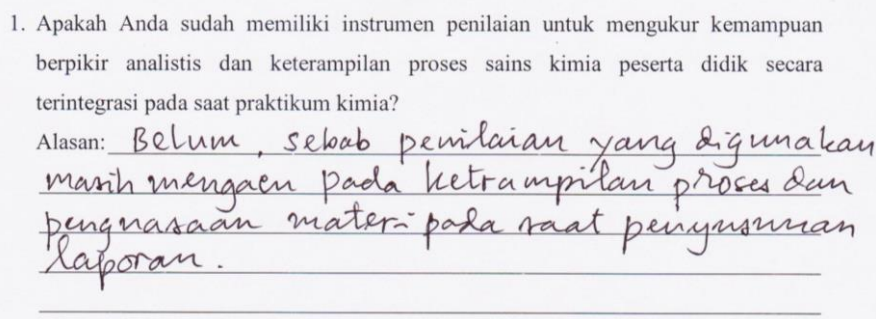 1. Apakah Anda sudah memiliki instrumen penilaian untuk mengukur kemampuan
berpikir analistis dan keterampilan proses sains kimia peserta didik secara
terintegrasi pada saat praktikum kimia?
Alasan: Belum, sebab penilaian yang digunakan
masih mengacu pada ketrampilan proses dan
penguasaan materi pada saat penyusunan
laporan.